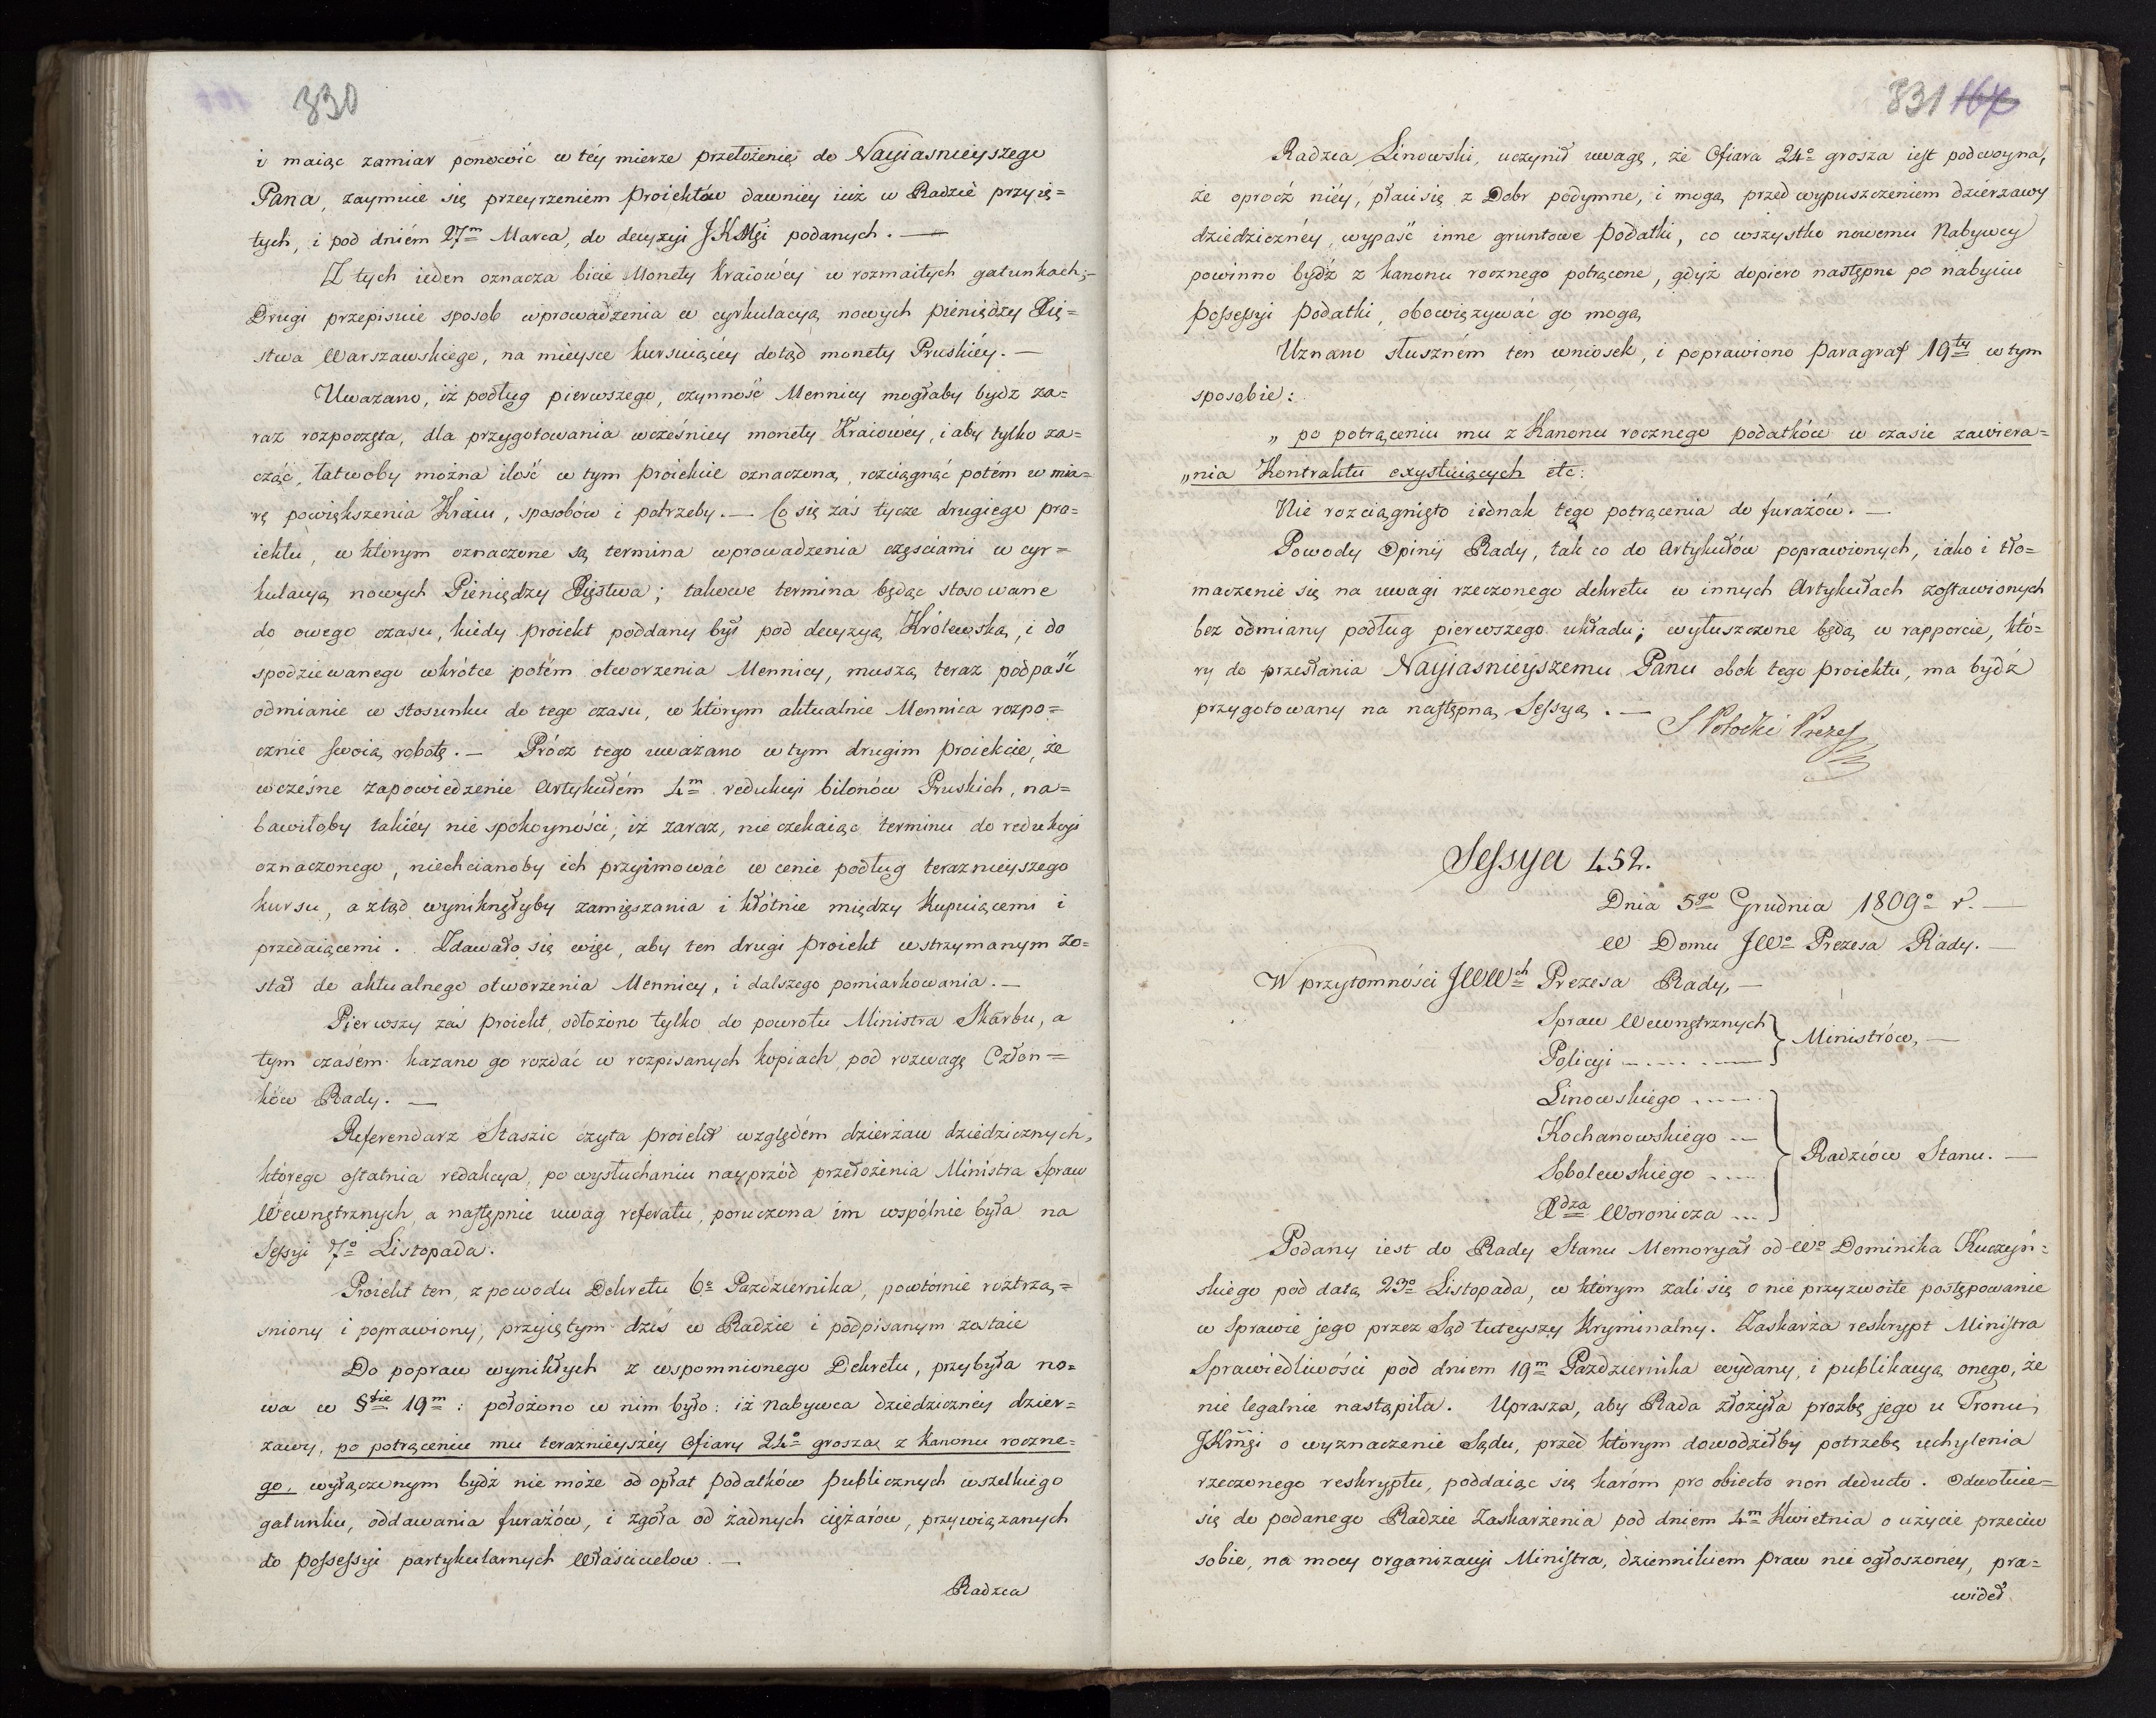 330
i maiąc zamiar ponowić w téy mierze przełożenie do Nayiasnieyszego
Pana, zaymuie się przeyrzeniem proiektów dawniéy iuż w Radzie przyię=
tych, i pod dniém 27m Marca, do decyzyi JKMci podanych. —
Z tych ieden oznacza bicie Monety Kraiowéy w rozmaitych gatunkach; —
Drugi przepisuie sposob wprowadzenia w cyrkulacyą nowych pieniędzy Xię=
stwa Warszawskiego, na mieysce kursuiącéy dotąd monety Pruskiéy. —
Uważano, iż podług pierwszego, czynność Mennicy mogłaby bydz za=
raz rozpoczęta, dla przygotowania wcześniey monety Kraiowéy, i aby tylko za=
cząć, łatwoby można ilość w tym proiekcie oznaczoną, rozciągnąć potém w mia=
rę powiększenia Kraiu, sposobów i potrzeby. — Co się zaś tycze drugiego pro=
iektu, w którym oznaczone są termina wprowadzenia częściami w cyr=
kulacyą nowych Pieniędzy Xięstwa; takowe termina będąc stosowane
do owego czasu, kiedy proiekt poddany był pod decyzyą Królewską, i do
spodziewanego wkrótce potém otworzenia Mennicy, muszą teraz podpaść
odmianie w stosunku do tego czasu, w którym aktualnie Mennica rozpo=
cznie swoią robotę. — Prócz tego uważano w tym drugim proiekcie, że
wcześne zapowiedzenie Artykułém 4m redukcyi bilonów Pruskich, na=
bawiłoby takiéy niespokoyności, iż zaraz, nie czekaiąc terminu do redukcyi
oznaczonego, niechcianoby ich przyimować w cenie podług terazniéyszego
kursu, a ztąd wyniknęłyby zamięszania i kłótnie między Kupuiącemi i
przedaiącemi. Zdawało się więc, aby ten drugi proiekt wstrzymanym zo=
stał do aktualnego otworzenia Mennicy, i dalszego pomiarkowania. —
Pierwszy zaś proiekt, odłożono tylko do powrotu Ministra Skarbu, a
tym czasém kazano go rozdać w rozpisanych kopiach, pod rozwagę Człon=
ków Rady. —
Referendarz Staszic czyta proiekt względém dzierżaw dziedzicznych,
którego ostatnia redakcya, po wysłuchaniu nayprzód przełożenia Ministra Spraw
Wewnętrznych, a następnie uwag referatu, poruczona im wspólnie była na
Sessyi 7o Listopada.
Proiekt ten, z powodu Dekretu 6o Pazdziernika, powtórnie roztrzą=
sniony i poprawiony, przyiętym dziś w Radzie i podpisanym zostaie
Do popraw wynikłych z wspomnionego Dekretu, przybyła no=
wa w §fie 19m: położono w nim było: iż nabywca dziedzicznéy dzier=
zawy, po potrąceniu mu teraznieyszéy Ofiary 24o grosza z kanonu roczne=
go, wyłączonym bydź nie może od opłat podatków publicznych wszelkiego
gatunku, oddawania furażów, i zgoła od żadnych ciężarów, przywiązanych
do possessyi partykularnych Właścicielow. —
Radzca
331 167
Radzca Linowski, uczynił uwagę, że Ofiara 24o grosza iest podwoyna,
że oprócź niéy, płaci się z Dobr podymne, i mogą przed wypuszczeniem dzierzawy
dziedzicznéy, wypaść inne gruntowe podatki, co wszystko nowemu Nabywcy
powinno bydź z kanonu rocznego potrącone, gdyż dopiero następne po nabyciu
possessyi podatki, obowięzywać go mogą
Uznano słuszném ten wniosek, i poprawiono paragraf 19ty w tym
sposobie:
„ po potrąceniu mu z Kanonu rocznego podatków w czasie zawiera=
„nia Kontraktu exystuiących etc:
Nie rozciągnięto iednak tego potrącenia do furażów. —
Powody Opinij Rady, tak co do Artykułów poprawionych, iako i tło=
maczenie się na uwagi rzeczonego dekretu w innych Artykułach zostawionych
bez odmiany podług pierwszego układu; wyłuszczone będą w rapporcie, któ=
ry do przesłania Nayiasnieyszemu Panu obok tego proiektu, ma bydź
przygotowany na następną Sessyą. —
S Potocki Prezes
Sessya 452.
Dnia 5go Grudnia 1809o r. —
W Domu JWo Prezesa Rady. —
W przytomności JWWch Prezesa Rady, —
Spraw Wewnętrznych
Policyi } Ministrów, —
Linowskiego
Kochanowskiego
Sobolewskiego } Radzców Stanu. —
Xdza Woronicza
Podany iest do Rady Stanu Memoryał od Wo Dominika Kuczyń=
skiego pod datą 23o Listopada, w którym żali się o nie przyzwoite postępowanie
w Sprawie jego przez Sąd tuteyszy Kryminalny. Zaskarża reskrypt Ministra
Sprawiedliwości pod dniem 19m Pazdziernika wydany, i publikacyą onego, że
nie legalnie nastąpiła. Uprasza, aby Rada złożyła prozbę jego u Tronu
JKmci o wyznaczenie Sądu, przed którym dowodziłby potrzebę uchylenia
rzeczonego reskryptu, poddaiąc się karóm pro obiecto non deducto. Odwołuie=
się do podanego Radzie Zaskarżenia pod dniem 4m Kwietnia o użycie przeciw
sobie, na mocy organizacyi Ministra, dziennikiem praw nie ogłoszoney, pra=
wideł